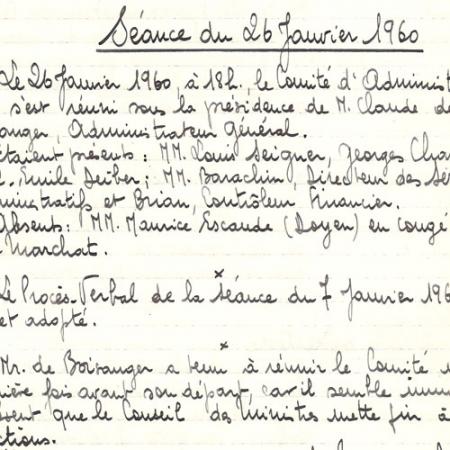 Séance du 26 Janvier 1960
Le 26 Janvier 1960, à 18h., le Comité d'Administ
s'est réuni sous la présidence de M. Claude de
anger, Administrateur Général.
Étaient présents : MM. Louis Seigner, Georges Cha
. Émile Seiber ; MM. Barachin, Directeur des Se
ministratifs et Brian, Contrôleur Financier.
Absents : MM. Maurice Escande (Doyen) en congé
Marchat.
Le Procès-Verbal de la séance du 7 Janvier 196
et adopté.
Mr. de Boisanger a tenu à réunir le Comité
nière fois avant son départ, car il semble
que le Conseil des Ministres mette fin à
ctions.